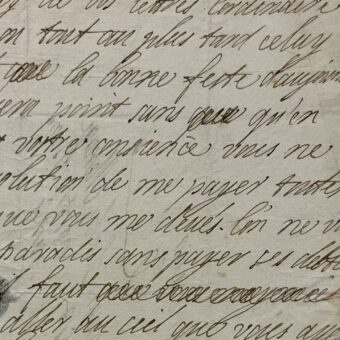 de vos lettres lordinaire
on tout au plus tard celuy
que la bonne feste daujour
point sans que qu'en
votre conscience vous ne
olution de me payer toutes
que vous me deués. lon ne v
paradis sans payer ses dette
il faut que vous
aller au ciel que vous ay